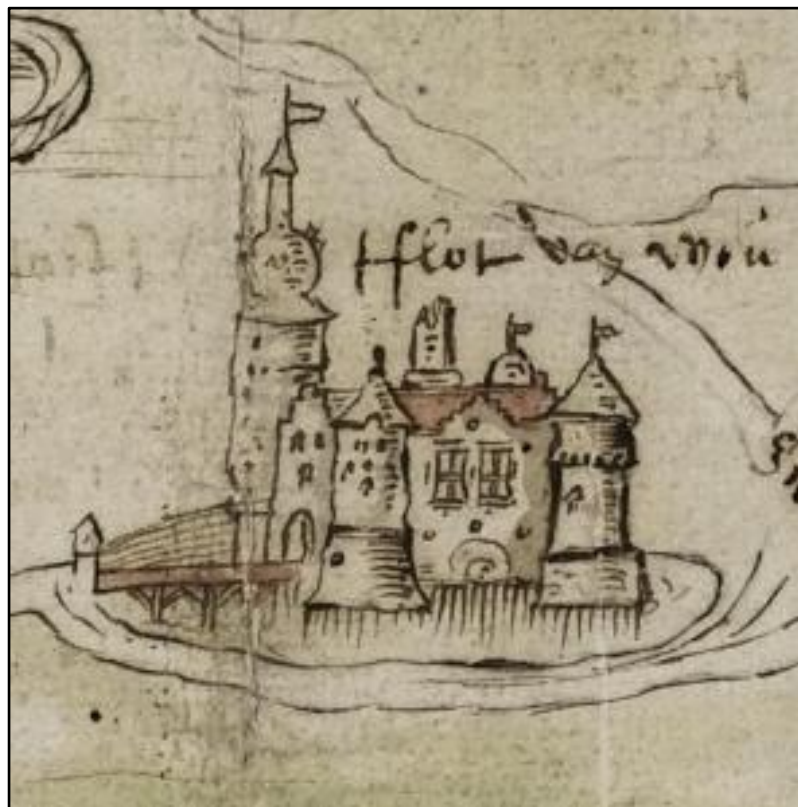 tslot van wou